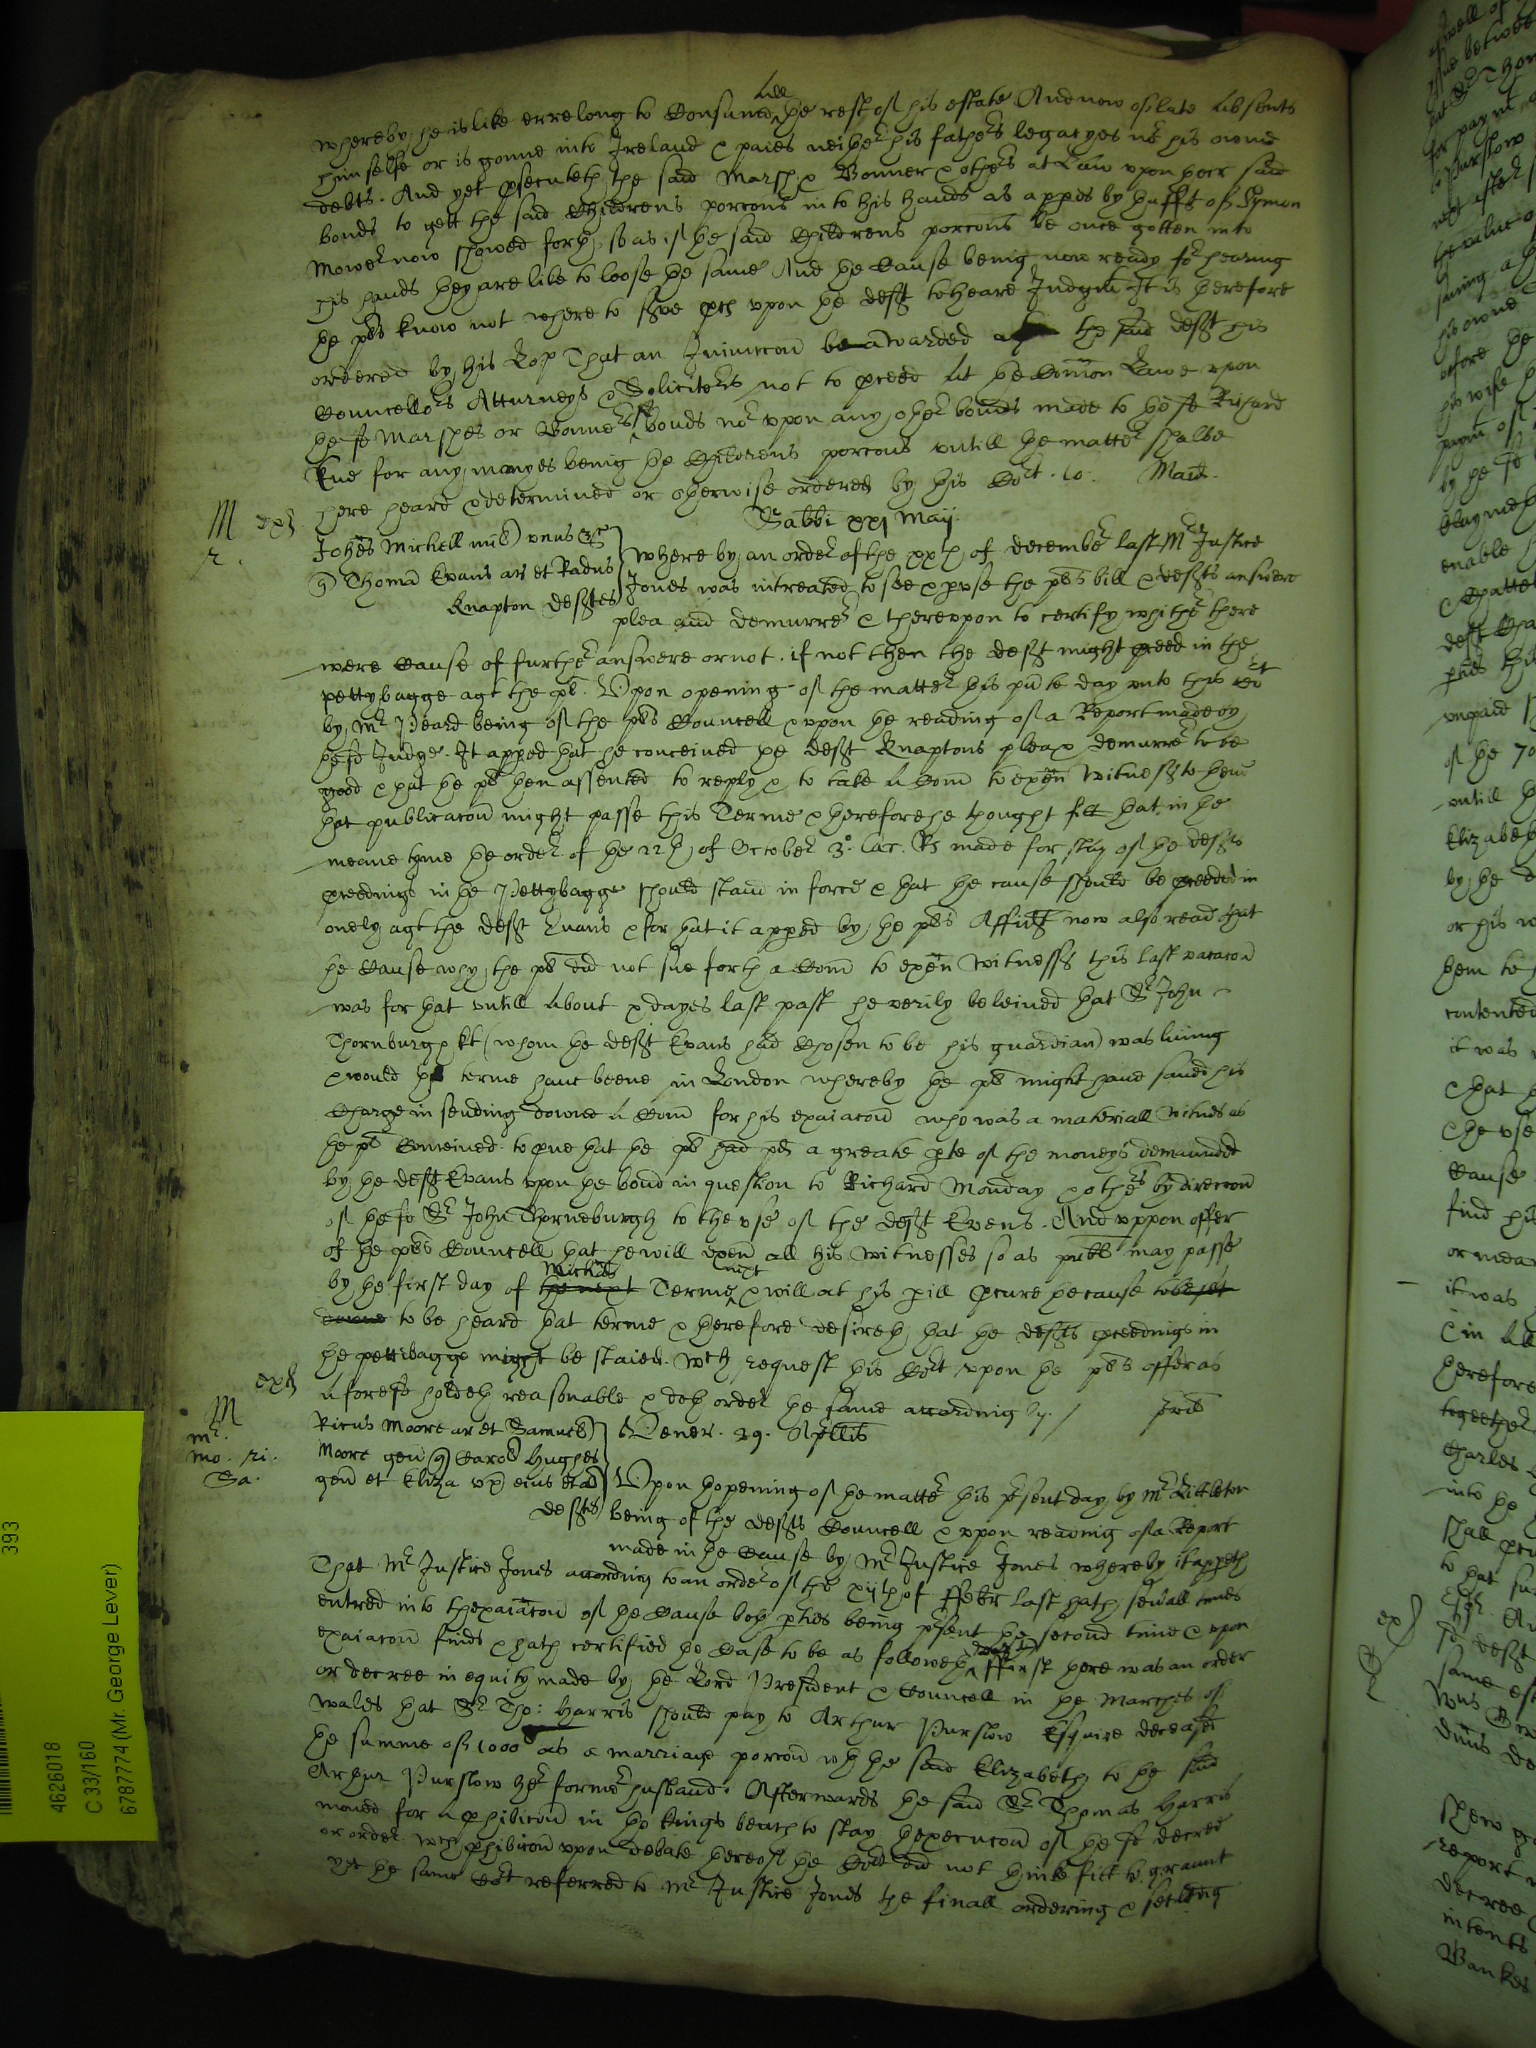 whereby he is like erre long to Consume all the rest of his estate And now of late Absents
himselfe or is gonne into Ireland & paies neither his fathers legacyes nor his owne
debts. And yet psecuteth the said Marsh & Bonner & others at Law upon their said
bonds to gett the said Childrens porcons into his hands as appes by thafft of Symon
Mower now shewed forth, so as if the said Childrens porcons be once gotten into
his hands they are like to loose the same And the Cause being now ready for hearing
the pltes know not where to serve pces upon the deft to heare Judgmt It is therefore
ordered by his Lop That an Iniunccon be awarded agt the said deft his
Councellors Atturneys & Solicitors not to pceed at the Comon Lawe upon
the sd Marshes or Bonners sd bonds nor upon any other bonds made to the sd Richard
for any monyes being the Childrens porcons untill the matter shalbe
here heard & determined or otherwise ordered by this Cort. 10. Maii.
Sabbi xxi Maii
M ex
r.
Johes Michell unus
Thoma Evans ar et Radus
Knapton deftes
Whereby an order of the xxth of december last Mr Justice
Jones was intreated to see & pvse the pltes bill & defts answere
plea and demurrer & thereupon to certify whither there
were Cause of further answere or not. if not then the deft might pceed in the
pettybagge agt the pl. Upon opening of the matter this pnte day unto this Cort
by Mr Heard being of the pltes Councell & upon the reading of a Report made by
the sd Judge. It apped that he conceived the deft Knaptons plea & demurrer to be
good & that he pl then assented to reply & to take A Com to exen Witness to thend
that publicacon might passe this Terme & therefore he thought fitt that in the
meane tyme the order of the 22th of October 3o Car. Rs made for stay of the defts
pceedings in the Pettybagge should stand in force & that the cause should be pceeded in
onely agt the deft Evans & for that it apped by the pltes Affidt now also read that
the Cause why the pl did not sue forth a Com to exen Witnesses this last vacacon
was for that untill About x dayes last past he verily beleived that Sr John
Thornburgh kt (whom the deft Evans had Chosen to be his guardian) was living
& would this terme have beene in London whereby the pl might have saved his
Charge in sending downe A Com for his exaiacon who was a materiall witnes as
the pl Conceived to pve that the pl had pd a greate pte of the moneys demaunded
by the deft Evans upon the bond in question to Richard Monday & others by direccon
of the sd Sr John Thorneburgh to the use of the deft Evens. And uppon offer
of the pltes Councell that he will exen all his Witnesses so as publ may passe
by the first day of the next Michas Terme next & will at his pill pcure the cause to be set
downe to be heard that terme & therefore desireth that the defts pceedings in
the pettibagge might be staied. Wch request this Cort upon the pltes offer as
ex
aforesd holdeth reasonable & doth order the same accordingly. /
M
mr.
mo. ri.
Sa.
Ricus Moore ar et Samuel
Moore gen Carol Hughes
gen et Eliza ux eius et al
defts
Vener. 29. Aprilis
Upon thopening of the matter this pssent day by Mr Littleton
being of the defts Councell & upon reading of a Report
made in the Cause by Mr Justice Jones whereby it appeth
That Mr Justice Jones according to an order of the xijth of ffebr last hath sevall times
entred into thexaiacon of the Cause both pties being psent the second time & upon
exaiacon finds & hath certified the Case to be as followeth ffirst there was an order
or decree in equity made by the Lord President & Councell in the Marches of
Wales that Sr Tho: Harris should pay to Arthur Purslow Esquire deceased
the summe of 1000l as a marriage porcon wth the said Elizabeth to the said
Arthur Purslow her former husband. Afterwards the said Sr Thomas Harris
moved for A phibicon in the kings bench to stay thexecucon of the sd decree
or order. Wch phibicon upon debate thereof the Cort did not thinke fitt to graunt
yet the same Cort referred to Mr Justice Jones the finall ordering & setling
393
4626018
C 33/160
6787774 (Mr. George Lever)